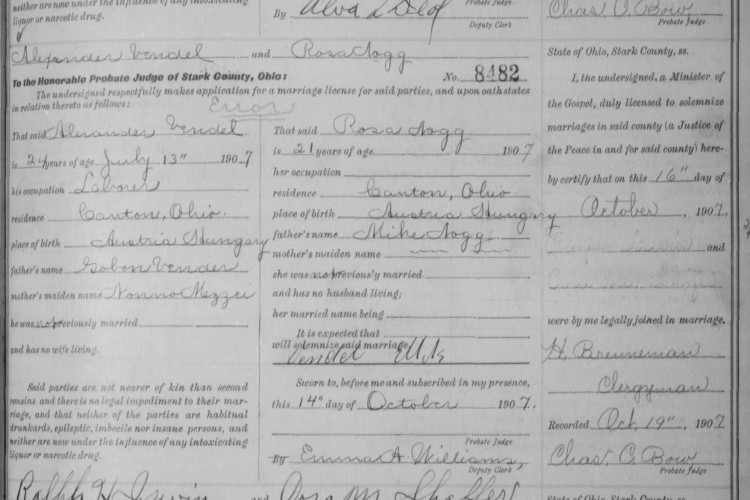 neither are now under the influence of any intoxicating
liquor or narcotic drug.
By
Probate Judge
Deputy Clerk
Chas. C. Bow
Probate Judge
Alexander Vendel and Rosa Nogg
To the Honorable Probate Judge of Stark County, Ohio: No. 8482
The undersigned respectfully makes application for a marriage license for said parties, and upon oath states
in relation thereto as follows:
Error
That said Alexander Vendel
is 24 years of age July 13" 1907
his occupation Laborer
residence Canton, Ohio.
place of birth Austria Hungary
father's name Vendel
mother's maiden name
he was not previously married
and has no wife living.
Said parties are not nearer of kin than second
cousins, and there is no legal impediment to their mar-
riage, and that neither of the parties are habitual
drunkards, epileptic, imbecile nor insane persons, and
neither are now under the influence of any intoxicating
liquor or narcotic drug.
That said Rosa Nogg
is 21 years of age 1907
her occupation
residence Canton, Ohio
place of birth Austria Hungary
father's name Mike Nogg
mother's maiden name
she was not previously married
and has no husband living;
her married name being
It is expected that
will solemnize said marriage
Vendel Elek
Sworn to, before me and subscribed in my presence,
this 14" day of October 1907.
Probate Judge
By Emma A. Williams,
Deputy Clerk
State of Ohio, Stark County, ss.
I, the undersigned, a Minister of
the Gospel, duly licensed to solemnize
marriages in said county (a Justice of
the Peace in and for said county) here-
by certify that on this 16" day of
October, 1907,
and
were by me legally joined in marriage.
H. Breuneman
Clergyman
Recorded Oct. 19" 1907
Chas. C. Bow
Probate Judge
Ralph H. Irwin and
State of Ohio, Stark County, ss.